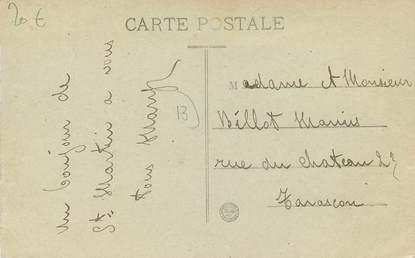 20 €
CARTE POSTALE
un bonjour de
St Martin a vous
tous
13
Madame et Monsieur
Billot Marius
rue du chateau 27
Tarascon